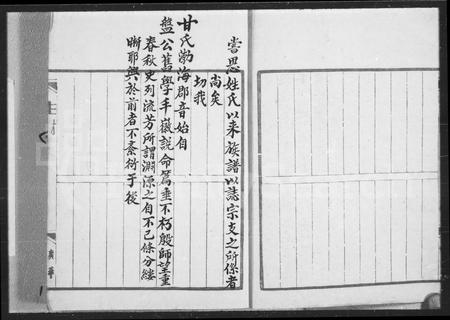 嘗思姓氏以来族譜以誌宗支之所係者
尚矣
切我
甘氏渤海郡音始自
盤公舊學手徽說命篤垂不朽殷師望重
春秋史列流芳所謂淵源之自不已條分縷
晰耶興於前者不紊衍于後